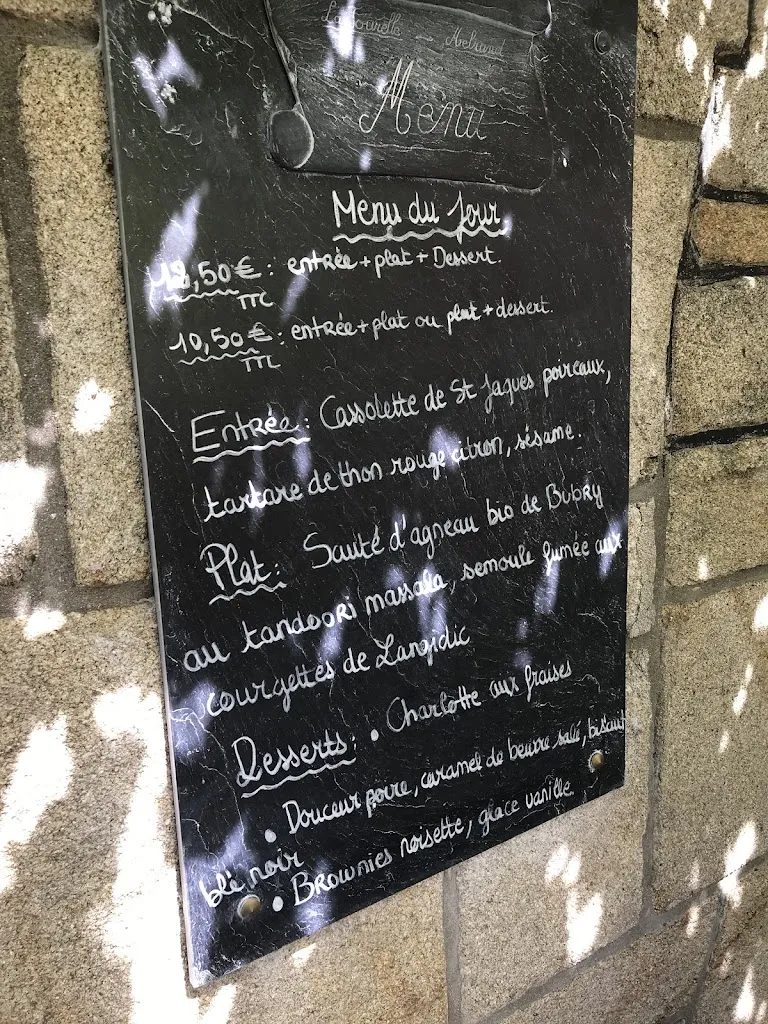 La Tourelle - Melrand
Menu
Menu du Jour
,50€: entrée + plat + Dessert.
TTC
10,50€: entrée + plat ou plat + dessert.
TTC
Entrée: Cassolette de St Jaques poireaux,
tartare de thon rouge citron, sésame.
Plat: Sauté d'agneau bio de Bubry
au tandoori massala, semoule fumée aux
courgettes de Langidic
Desserts: • Charlotte aux fraises
• Douceur poire, caramel de beurre salé, biscuit
blé noir
• Brownies noisette, glace vanille